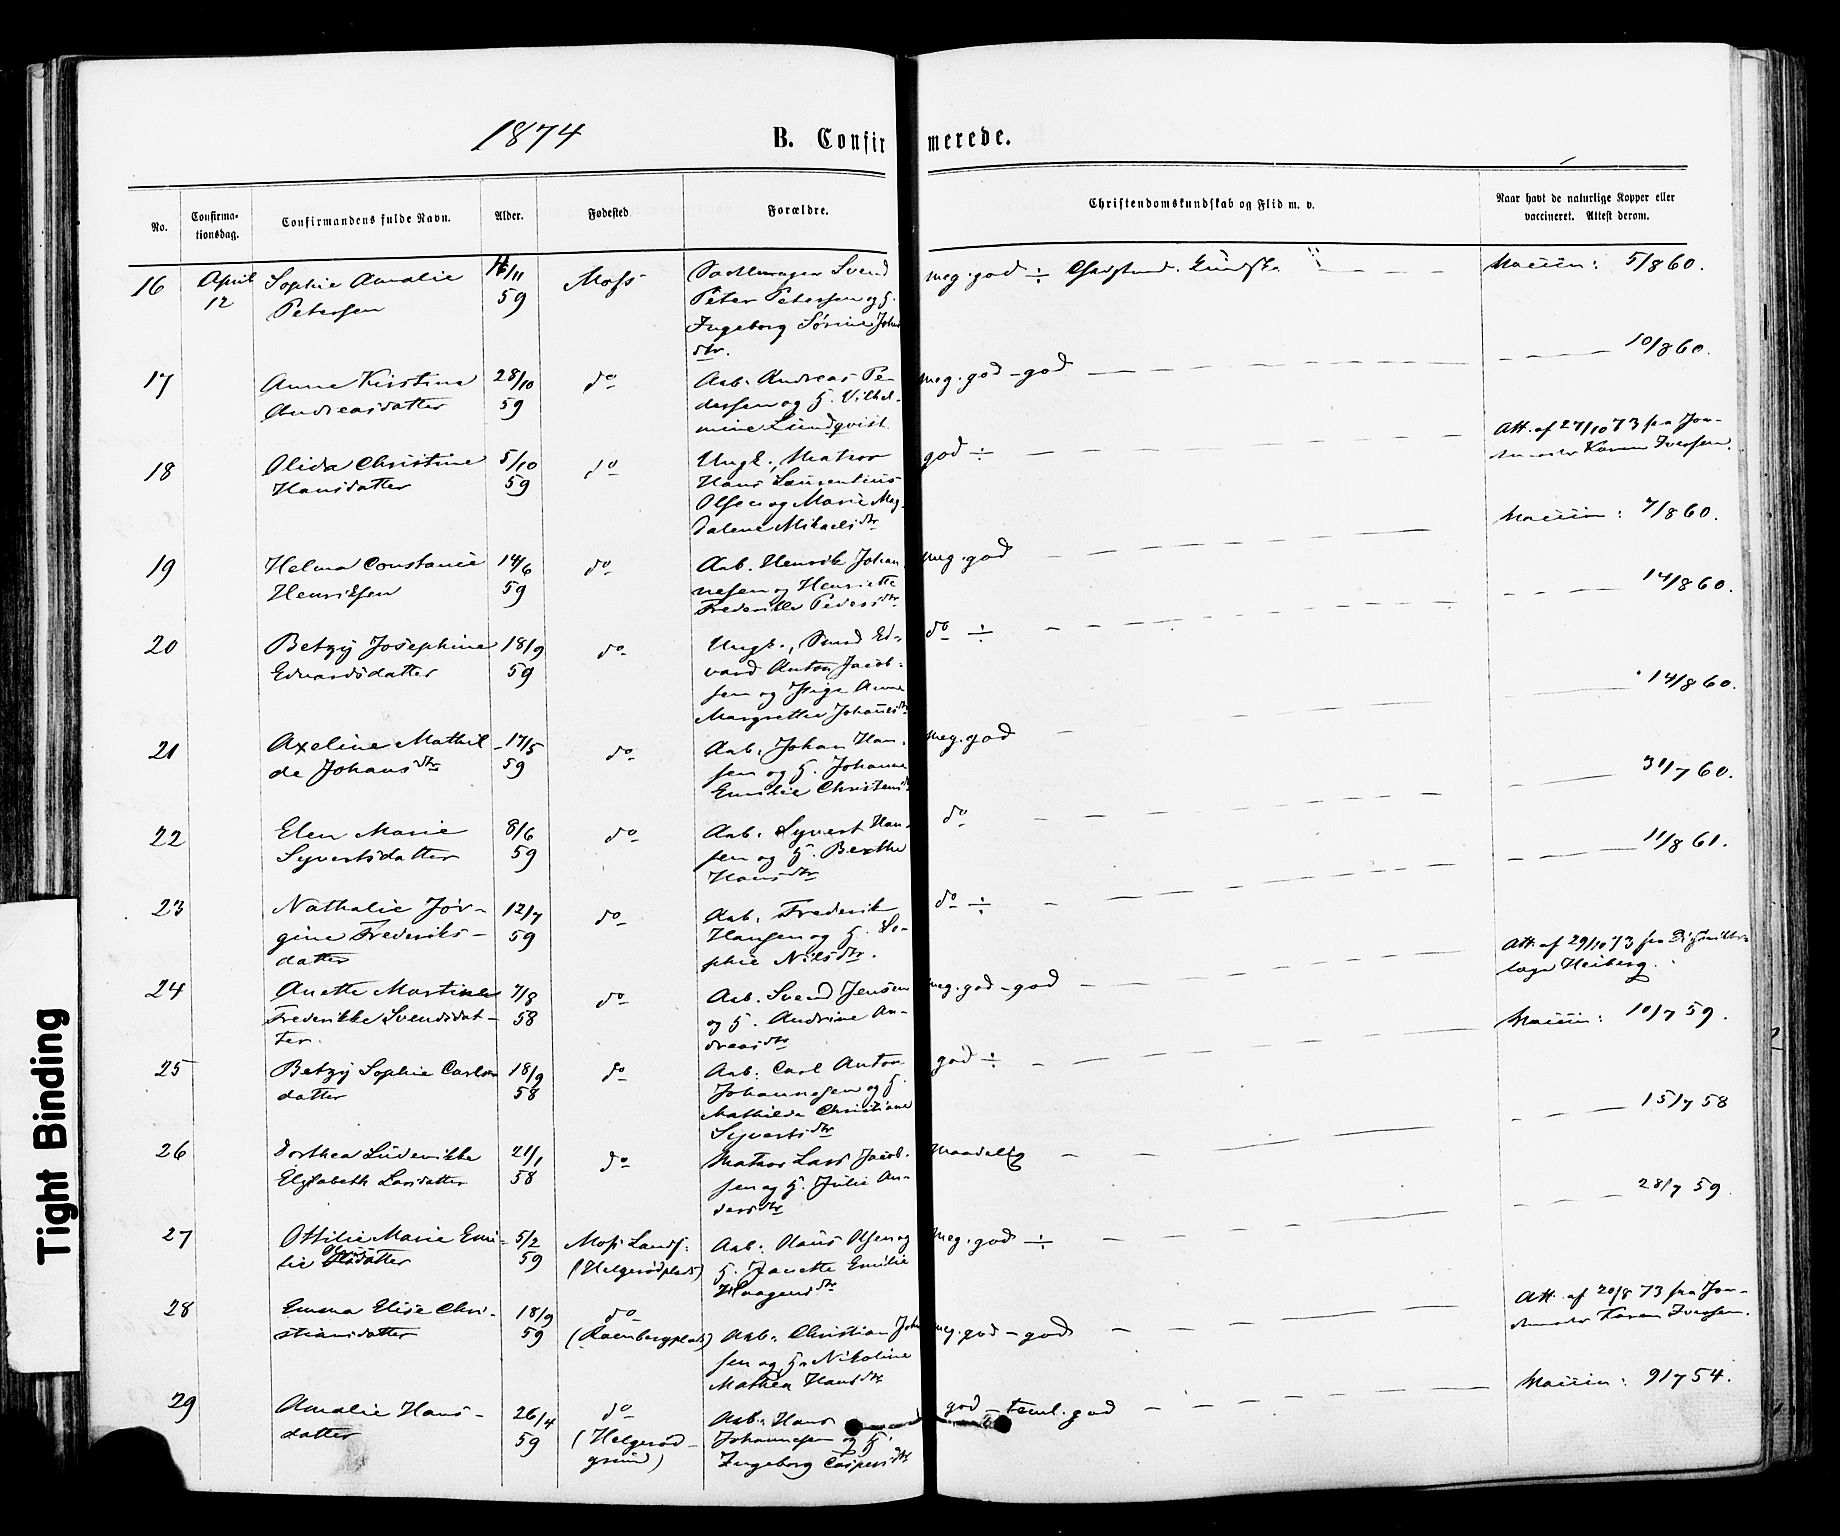 1874
B. Confirmerede.
No.
Confirma-
tionsdag.
Confirmandens fulde Navn.
Alder.
Fødested.
Forældre.
Christendomskundskab og Flid m. v.
Naar havt de naturlige Kopper eller
vaccineret. Attest derom.
16 April 12
Sophie Amalie
Petersen
/11 59
Moss
Sadelmager Svend
Peter Petersen og H.
Ingeborg Sørine Johns
dtr.
meg. god ÷
Vaccin: 5/8 60.
17
Anne Kirstine
Andreasdatter
28/10 59
do
Arb. Andreas Pe-
dersen og H. Vilhel-
mine Lundqvist
meg. god - god
10/8 60.
18
Olida Christine
Hansdatter
5/10 59
do
Ungk., Matros
Hans Laurentius
Olsen og Marie Mag-
dalene Mikaelsdtr
god ÷
Att. af 27/10 73 fra Jor-
demoder Karen Iversen.
19
Helma Constance
Henriksen
14/6 59
do
Arb. Henrik Johan
nesen og Henriette
Frederikke Pedersdtr
meg. god
Vaccin: 7/8 60.
20
Betzy Josephine
Edvardsdatter
18/9 59
do
Ungk., Smed Ed-
vard Anton Jacob-
sen og Pige Anne
Margrethe Johansdtr
do ÷
14/8 60.
21
Axeline Mathil-
de Johansdtr
17/5 59
do
Arb. Johan Han-
sen og H. Johanne
Emilie Christensd
meg. god
14/8 60.
22
Elen Marie
Syvertsdatter
8/6 59
do
Arb. Syvert Han-
sen og H. Berthe
Hansdtr
do
31/7 60.
23
Nathalie Jør-
gine Frederiks-
datter
12/7 59
do
Arb. Frederik
Hansen og H. So-
phie Nilsdtr.
do ÷
11/8 61.
24
Anette Martine
Frederikke Svendsdat-
ter.
7/8 58
do
Arb. Svend Jensen
og H. Andrine An-
dreasdtr
meg. god - god
Att. af 29/10 73 fra Distrikts-
læge Heiberg.
25
Betzy Sophie Carls
datter
18/9 58
do
Arb. Carl Anton
Johannesen og H.
Mathilde Christiane
Syvertsdtr
god ÷
Vaccin: 10/7 59.
26
Dorthea Ludevikke
Elisabeth Larsdatter
21/1 58
do
Matros Lars Jacob-
sen og H. Julie An-
dersdtr
Maadelig
15/7 58
27
Ottilie Marie Emi-
lie Olsdatter
5/2 59
Moss Lands:
(Helgerødplads)
Arb. Olaus Olsen og
H. Janette Emilie
Haagensdtr
Meg. god ÷
28/7 59.
28
Emma Elise Chri-
stiansdatter
18/9 59
do
(Ravnbergplads)
Arb. Christian Joh
sen og H. Nikoline
Mathea Hansdtr
meg. god - god
Att. af 20/8 73 fra Jor-
demoder Karen Iversen.
29
Amalie Hans-
datter
26/4 59
do
(Helgerød-
grund)
Arb. Hans
Johannesen og H.
Ingeborg Caspersdtr
god - teml. god
Vaccin: 9/7 54.
Tight Binding